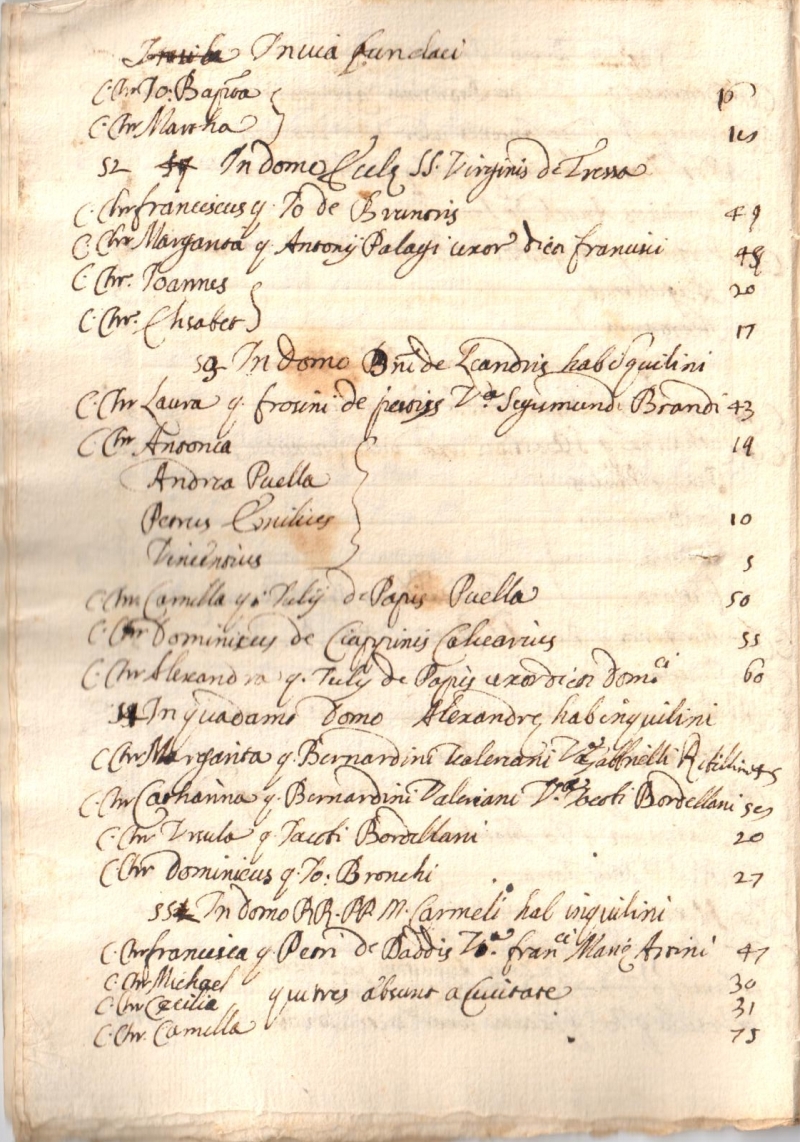 In via fundaci
C. Chr. Jo: Bapta 10
C. Chr Martha
52 In domo Eccle SS. Virginis de Tressa
C. Chr franciscus q. Jo de Bruntis 49
C. Chr. Margarita q. Antonij Palagi uxor dicti francisci 48
C. Chr. Joannes 20
C. Chr. Elisabet 17
53 In domo Dni de Leandris hab inquilini
C. Chr Laura q. frosini de Va Segismundi Brandi 43
C. Chr Antonia 19
Andrea Puella
Petrus Emilius 10
Vincentius 5
C. Chr Camilla q. Julij de Papis Puella 50
C. Chr Dominicus de Ciappinis Calcearius 55
C. Chr Alexandra q. Julij de Papis uxor dicti domci 60
54 In quadam domo Alexandre hab inquilini
C Chr Margarita q. Bernardini Valeriani Va Gabbrielli 45
C. Chr Catharina q. Bernardini Valeriani Va Jacobi Bordellani 50
C. Chr Ursula q Jacobi Bordellani 20
C Chr Dominicus q. Jo: Bronchi 27
55 In domo RR. PP. M. Carmeli hab inquilini
C. Chr francisca q Petri de Baddis Va. franci Marie Arsini 47
C. Chr Michael 30
C. Chr Cecilia qui tres absunt a Civitate 31
C. Chr. Camilla 75